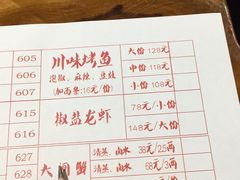 605 川味烤鱼 大份 128元
606 泡椒、麻辣、豆豉 中份 118元
607 (加面餐:16元/份) 小份 108元
615 椒盐龙虾 78元/小份
616 148元/大份
627 大闸蟹 清蒸、山水 38元/2.5两
628 清蒸、山水 68元/3两